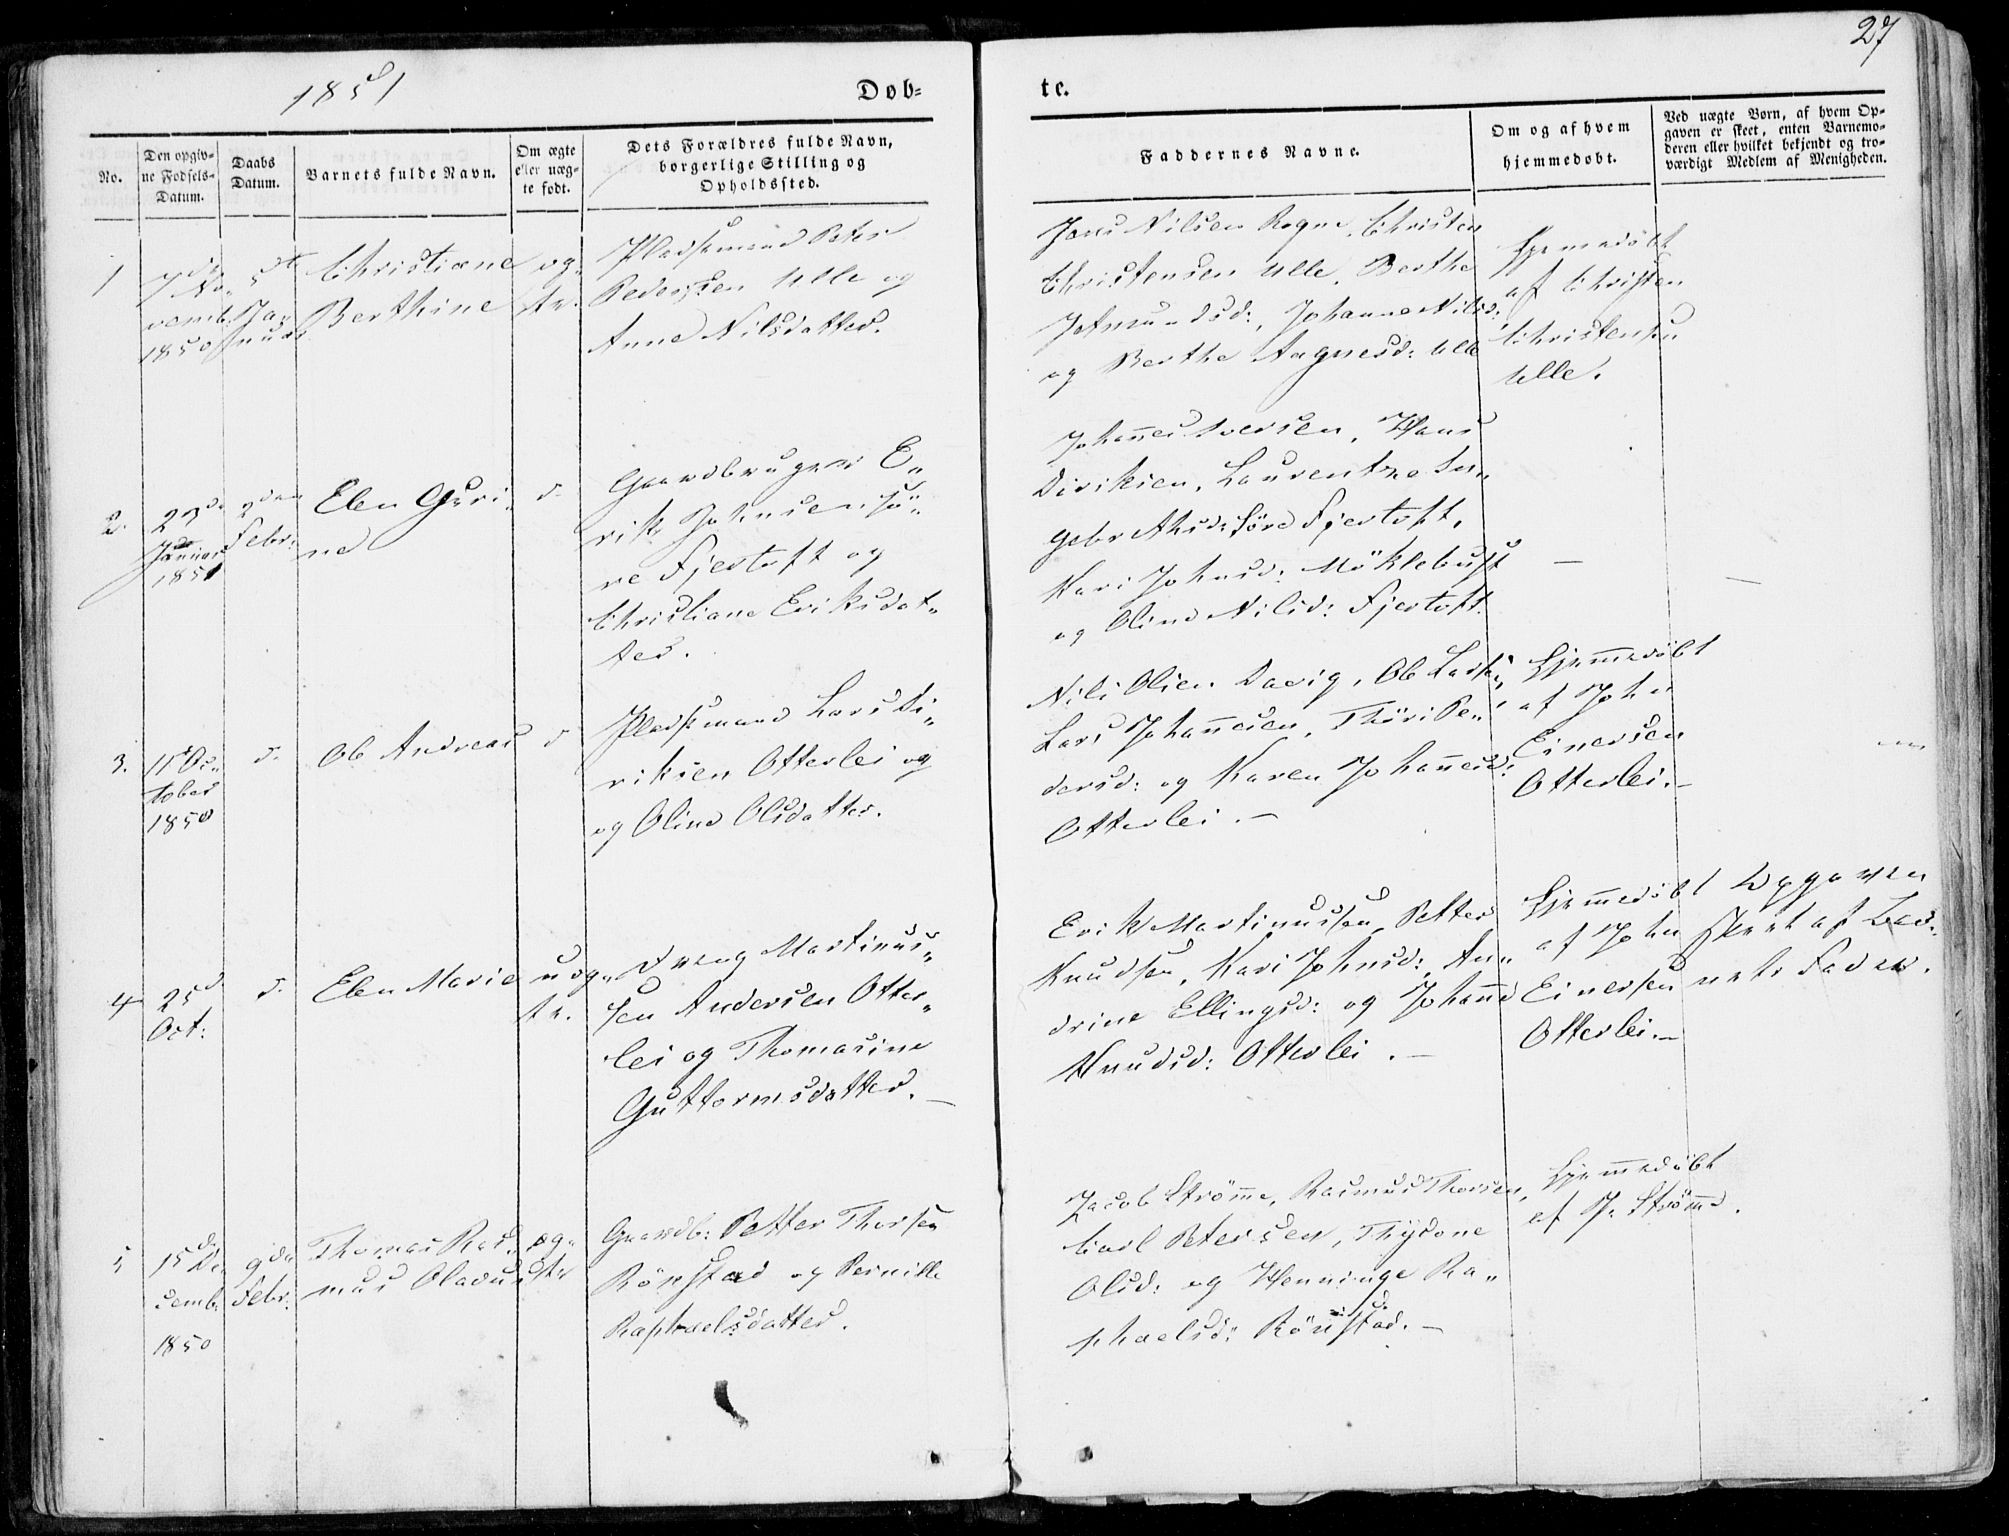 27
1851
Døb-
te.
No.
Den opgiv-
ne Fødsels-
Datum.
Daabs
Datum.
Barnets fulde Navn.
Om ægte
eller uæg-
te født.
Dets Forældres fulde Navn,
borgerlige Stilling og
Opholdssted.
Faddernes Navne.
Om og af hvem
hjemmedøbt.
Ved uægte Børn, af hvem Op-
gaven er skeet, enten Barnemo-
deren eller hvilket bekjendt og tro-
værdigt Medlem af Menigheden.
1
7d No-
vemb.
1850
5t
Ja-
nuar
Christiane
Berthine
æg-
te.
Pladsemand Peter
Pedersen Ulle og
Anne Nilsdatter.
Jens Nilsen Rogne, Christen
Christensen Ulle, Berthe
Johannes Nilsd:
og Berthe Aagnesd: Ulle
Hjemmedøbt
af Christen
Christensen
Ulle.
2.
Januar
1851
2den
Febr:
Elen Guri-
ne
d.
Gaardbruger E-
rik Johnsen Sö-
re Fjertoft og
Christiane Eriksdat-
ter.
Johannes Iversen, Hans
Diriksen, Laurentze In-
gebrethsd: Søre Fjertoft,
Kari Johnsd: Möklebust
og Oline Nilsd: Fjertoft.
—
—
3.
11t Oc-
tober
1850
d.
Ole Andreas
d
Pladsemand Lars Di-
riksen Otterlei og
og Oline Olsdatter.
Nils Olsen Davig, Ole Larsen,
Lars Johannesen, Thöri Pe-
dersd: og Karen Johannesd:
Otterlei. —
Hjemmedøbt
af John
Einersen
Otterlei. —
4
25d
Oct:
d.
Elen Marie
uæg-
te.
Dreng Martinus-
sen Andersen Otter-
lei og Thomasine
Guttormsdatter. —
Erik Martinussen, Petter
Knudsen, Kari Johnsd:, An-
drine Ellingsd: og Johanne
Knudsd: Otterlei. —
Hjemmedøbt
af John
Einersen
Otterlei. —
Opgaven
skeet af Bar-
nets Fader.
5
15de De-
cemb:
1850
9de
Febr:
Thomas Ras-
mus Olaus
æg-
te
Gaardb: Petter Thorsen
Rönstad og Pernille
Raphaelsdatter.
Jacob Strømme, Rasmus Thorsen,
Carl Petersen, Thydone
Olsd: og Henninge Ra-
phaelsd: Rönstad. —
Hjemmedøbt
af J. Strömme.